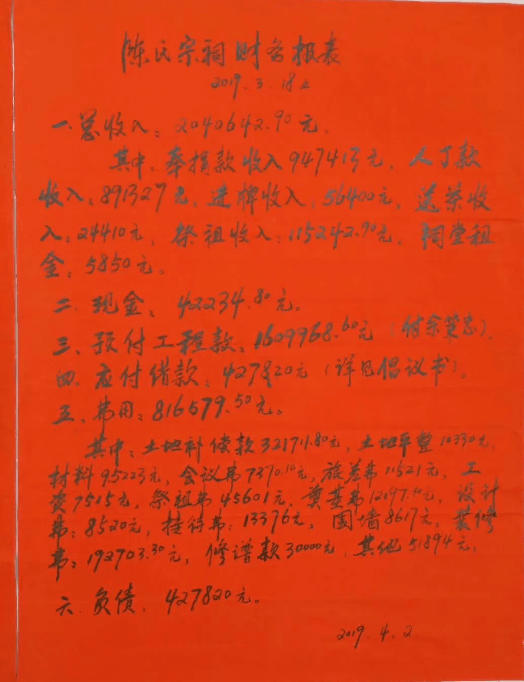 陈氏宗祠财务报表
2019.3.18
一.总收入：2040642.90元.
其中：奉捐款收入947413元、人丁款
收入：891327元、进牌收入：56400元、送荣收
入：24410元，祭祖收入：115242.90元，祠堂租
金：5850元。
二.现金：42234.80元。
三、预付工程款：1609968.60元（付宗荣志）.
四.应付借款：427820元（详见倡议书）。
五、费用：816579.50元。
其中：土地补偿款321711.80元，土地平整10330元，
材料95223元，会议费7370.10元，旅差费11521元，工
资7515元，祭祖费45601元，奠基费12197.10元，设计
费：8520元，接待费：13376元，围墙8617元，装修
费：192703.30元，修谱款30000元，其他51894元，
六.负债：427820元。
2019.4.2